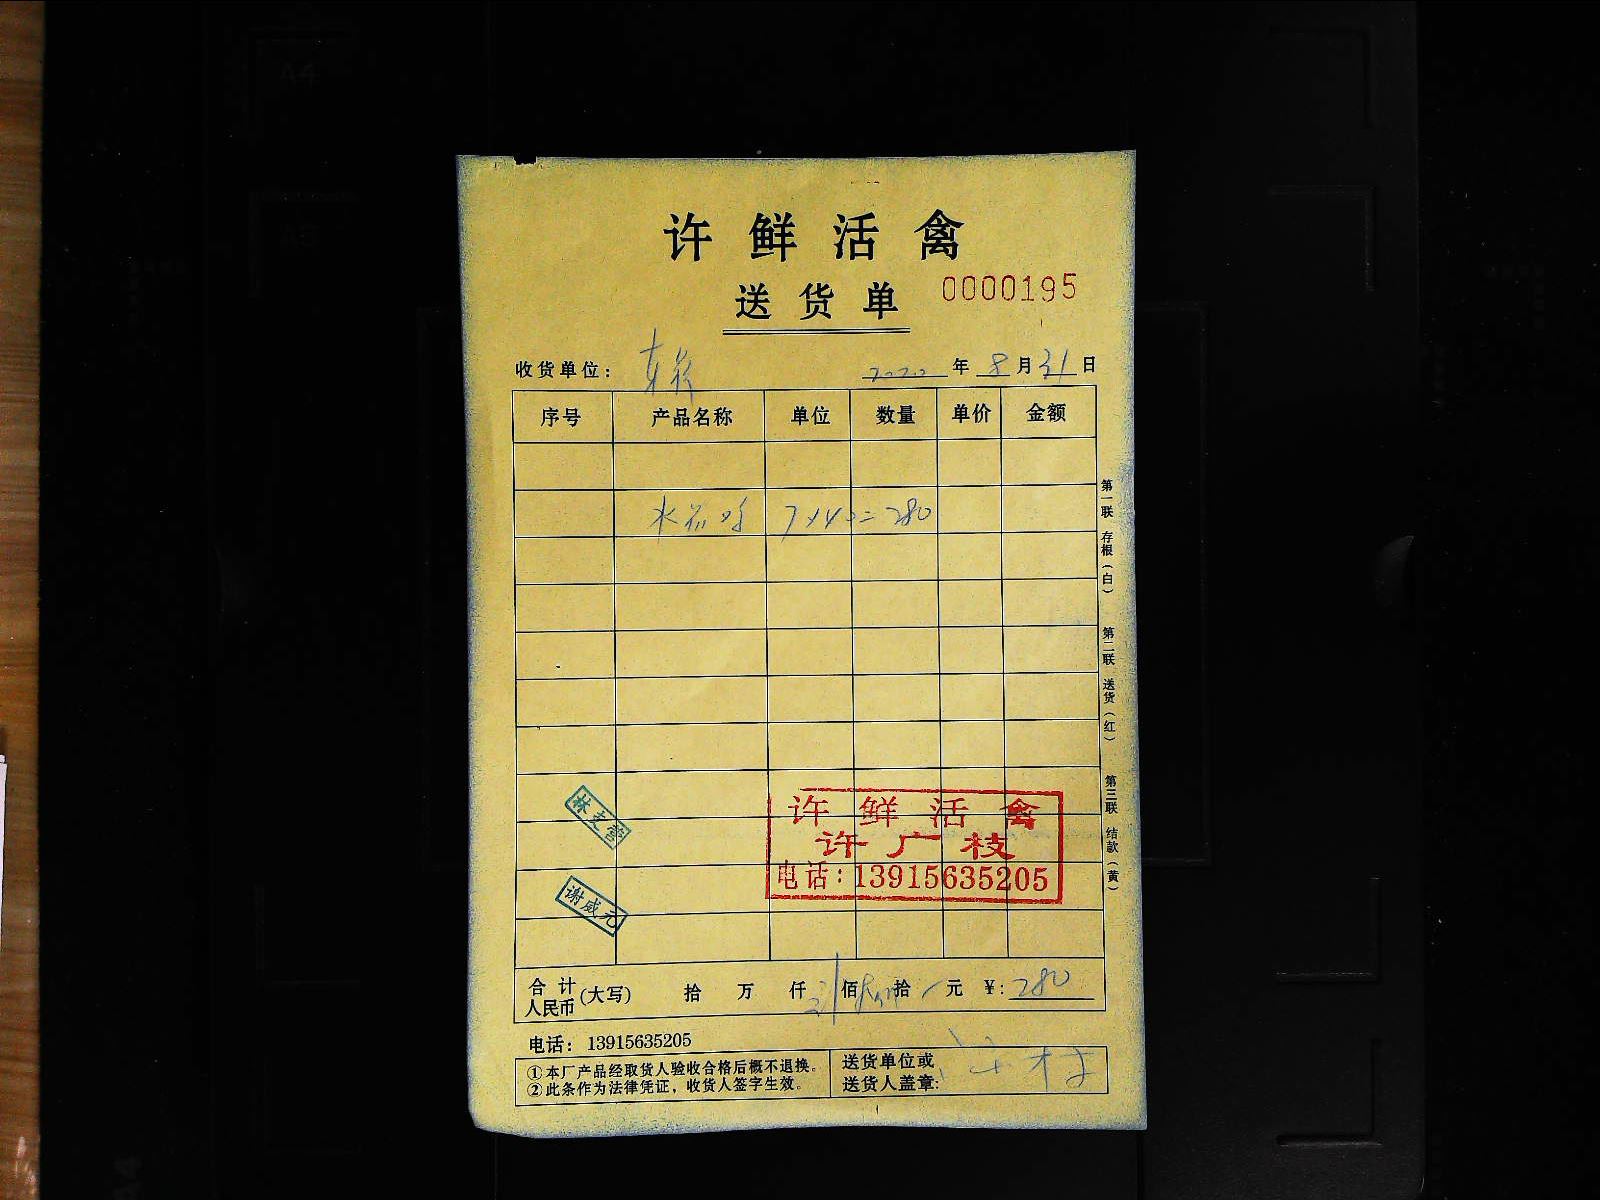 许鲜活禽
送货单 0000195
收货单位: 2020年8月31日
序号 产品名称 单位 数量 单价 金额
7×40=280
第一联 存根(白)
第二联 送货(红)
第三联 结款(黄)
林支营
谢威元
许鲜活禽
许广枝
电话:13915635205
合计人民币(大写) 拾 万 仟 佰 拾 元 ¥:280
电话: 13915635205
①本厂产品经取货人验收合格后概不退换。
②此条作为法律凭证,收货人签字生效。
送货单位或
送货人盖章:
A4
A5